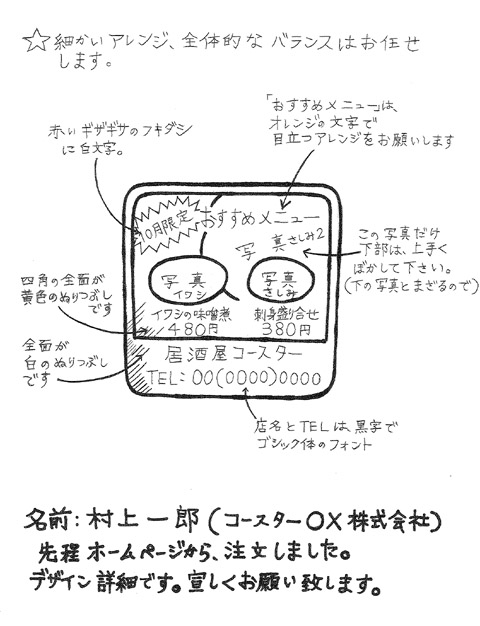 ☆細かいアレンジ、全体的なバランスはお任せ
します。
「おすすめメニュー」は、
オレンジの文字で
目立つアレンジをお願いします
赤いギザギザのフキダシ
に白文字。
10月限定
おすすめメニュー
写真さしみ2
この写真だけ
下部は、上手く
ぼかして下さい。
(下の写真とまざるので)
写真
イワシ
写真
さしみ
四角の全面が
黄色のぬりつぶし
です
イワシの味噌煮
480円
刺身盛り合せ
380円
全面が
白のぬりつぶし
です
居酒屋コースター
TEL:00(0000)0000
店名とTELは黒字で
ゴシック体のフォント
名前:村上一郎(コースターOX株式会社)
先程ホームページから、注文しました。
デザイン詳細です。宜しくお願い致します。